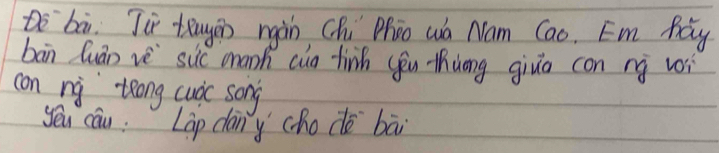 Đề bài: Từ truyện ngắn Chí Phèo của Nam Cao. Em hãy
bàn luận về sức mạnh của tình yêu thương giữa con ng̀ với
con ng̀ trong cuộc sống
Yêu cầu: Lập dàn ý cho đề bài